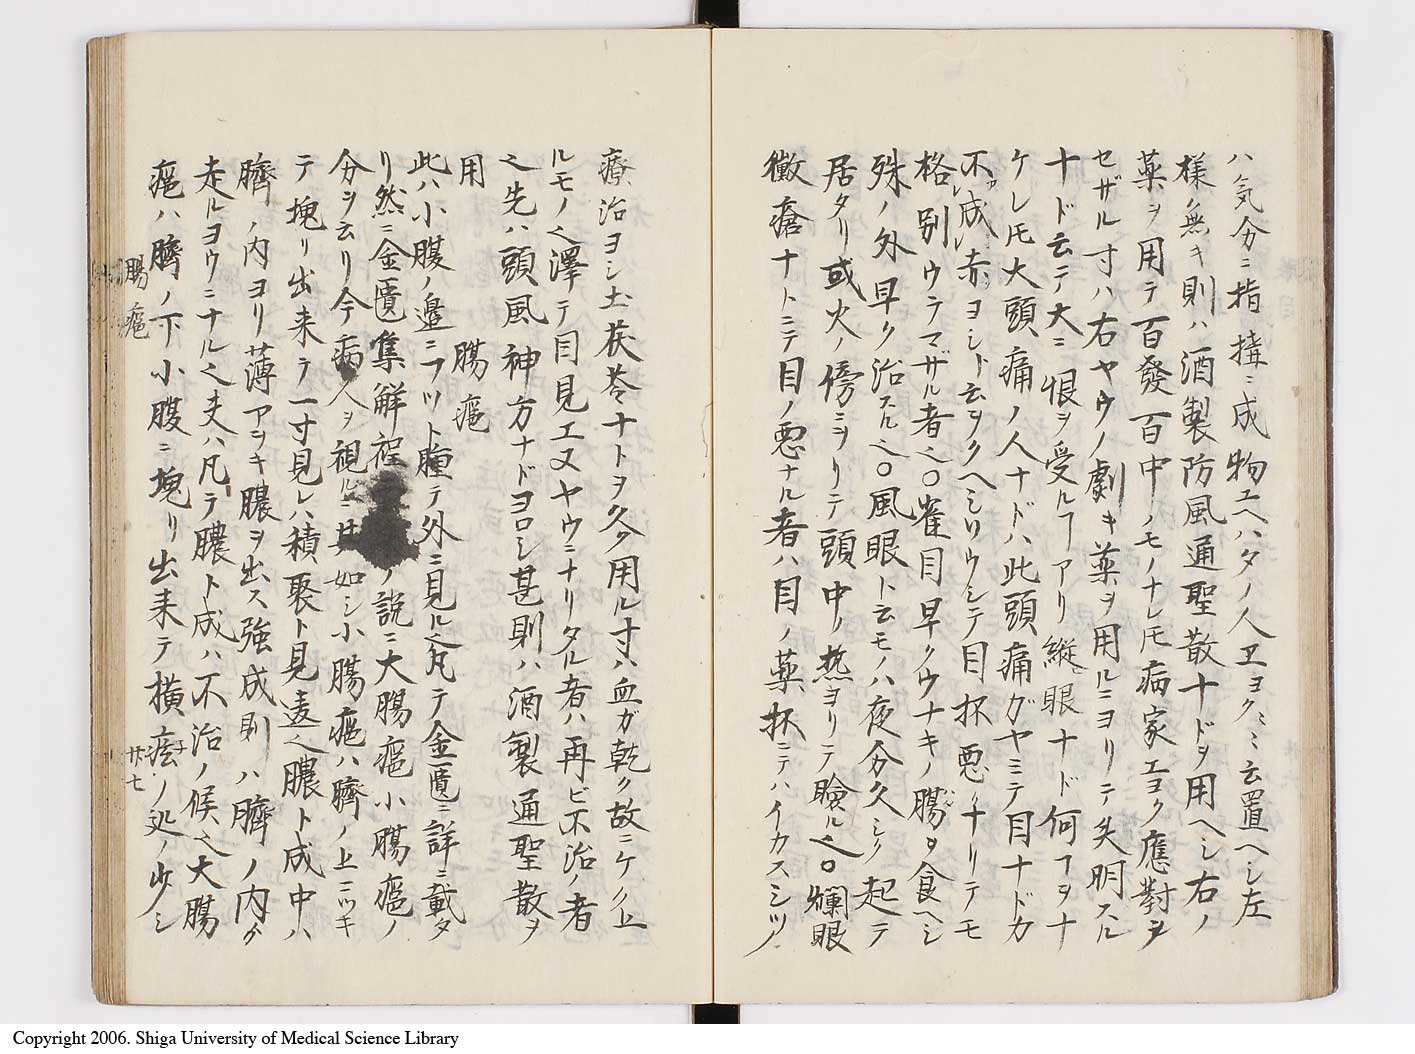 ハ気分ニ指構ニ成物ユヘハタノ人ヱヨクミミ云置ヘシ左
様無キ則ハ酒製防風通聖散ナドヲ用ヘシ右ノ
薬ヲ用テ百發百中ノモノナレ𪜈病家エヨク應對ヲ
セザル寸ハ右ヤウノ劇キ薬ヲ用ルニヨリテ失明スル
ナド云テ大ニ恨ヲ受ルヿアリ縦眼ナド何ヿヲナ
ケレ𪜈大頭痛ノ人ナドハ此頭痛ガヤミテ目ナドカ
不成赤ヨシト云ヲクヘシ目杯悪クナリテモ
格別ウラマザル者〇雀目早クウナキノ腸ヲ食ヘシ
殊ノ外早ク治スル〇風眼ト云モノハ夜分久シク起テ
居タリ或火ノ傍ミヲリテ頭中ノ熱ヨリテ瞼ル〇爛眼
黴瘡ナトニテ目ノ悪ナル者ハ目ノ薬杯ニテハイカスシツ
療治ヨシ土茯苓ナトヲ久ク用ル寸ハ血ガ乾ク故ニケク上
ルモノ澤テ目見エヌヤウニナリタル者ハ再ビ不治ノ者
先ハ頭風神方ナドヨロシ甚則ハ酒製通聖散ヲ
用
腸癰
此ハ小腹ノ邉ニフツト腫テ外ニ見ル凡テ金匱ニ詳ニ載タ
リ然ニ金匱集解程ノ説ニ大腸癰小腸癰ノ
分ヲ云リ今病人ヲ視ルニ其如シ小腸癰ハ臍ノ上ニツキ
テ塊リ出来テ一寸見レハ積聚ト見違膿ト成中ハ
臍ノ内ヨリ薄アヲキ膿ヲ出ス強成則ハ臍ノ内ゟ
走ルヨウニナル夫ハ凡テ膿ト成ハ不治ノ候大腸
癰ハ臍ノ下小腹ニ塊リ出来テ横痃ノ処ノ少シ
腸癰
廿七
Copyright 2006. Shiga University of Medical Science Library